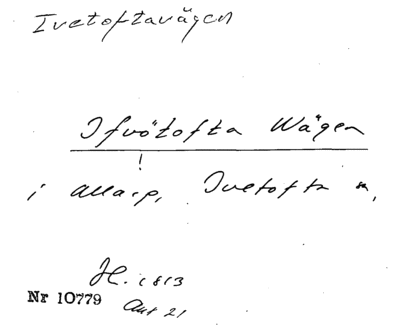 Ivetoftavägen
Ifvötofta Wägen
!
i Allarp, Ivetofta sn,
H. 1813
Nr 10779 Akt 21